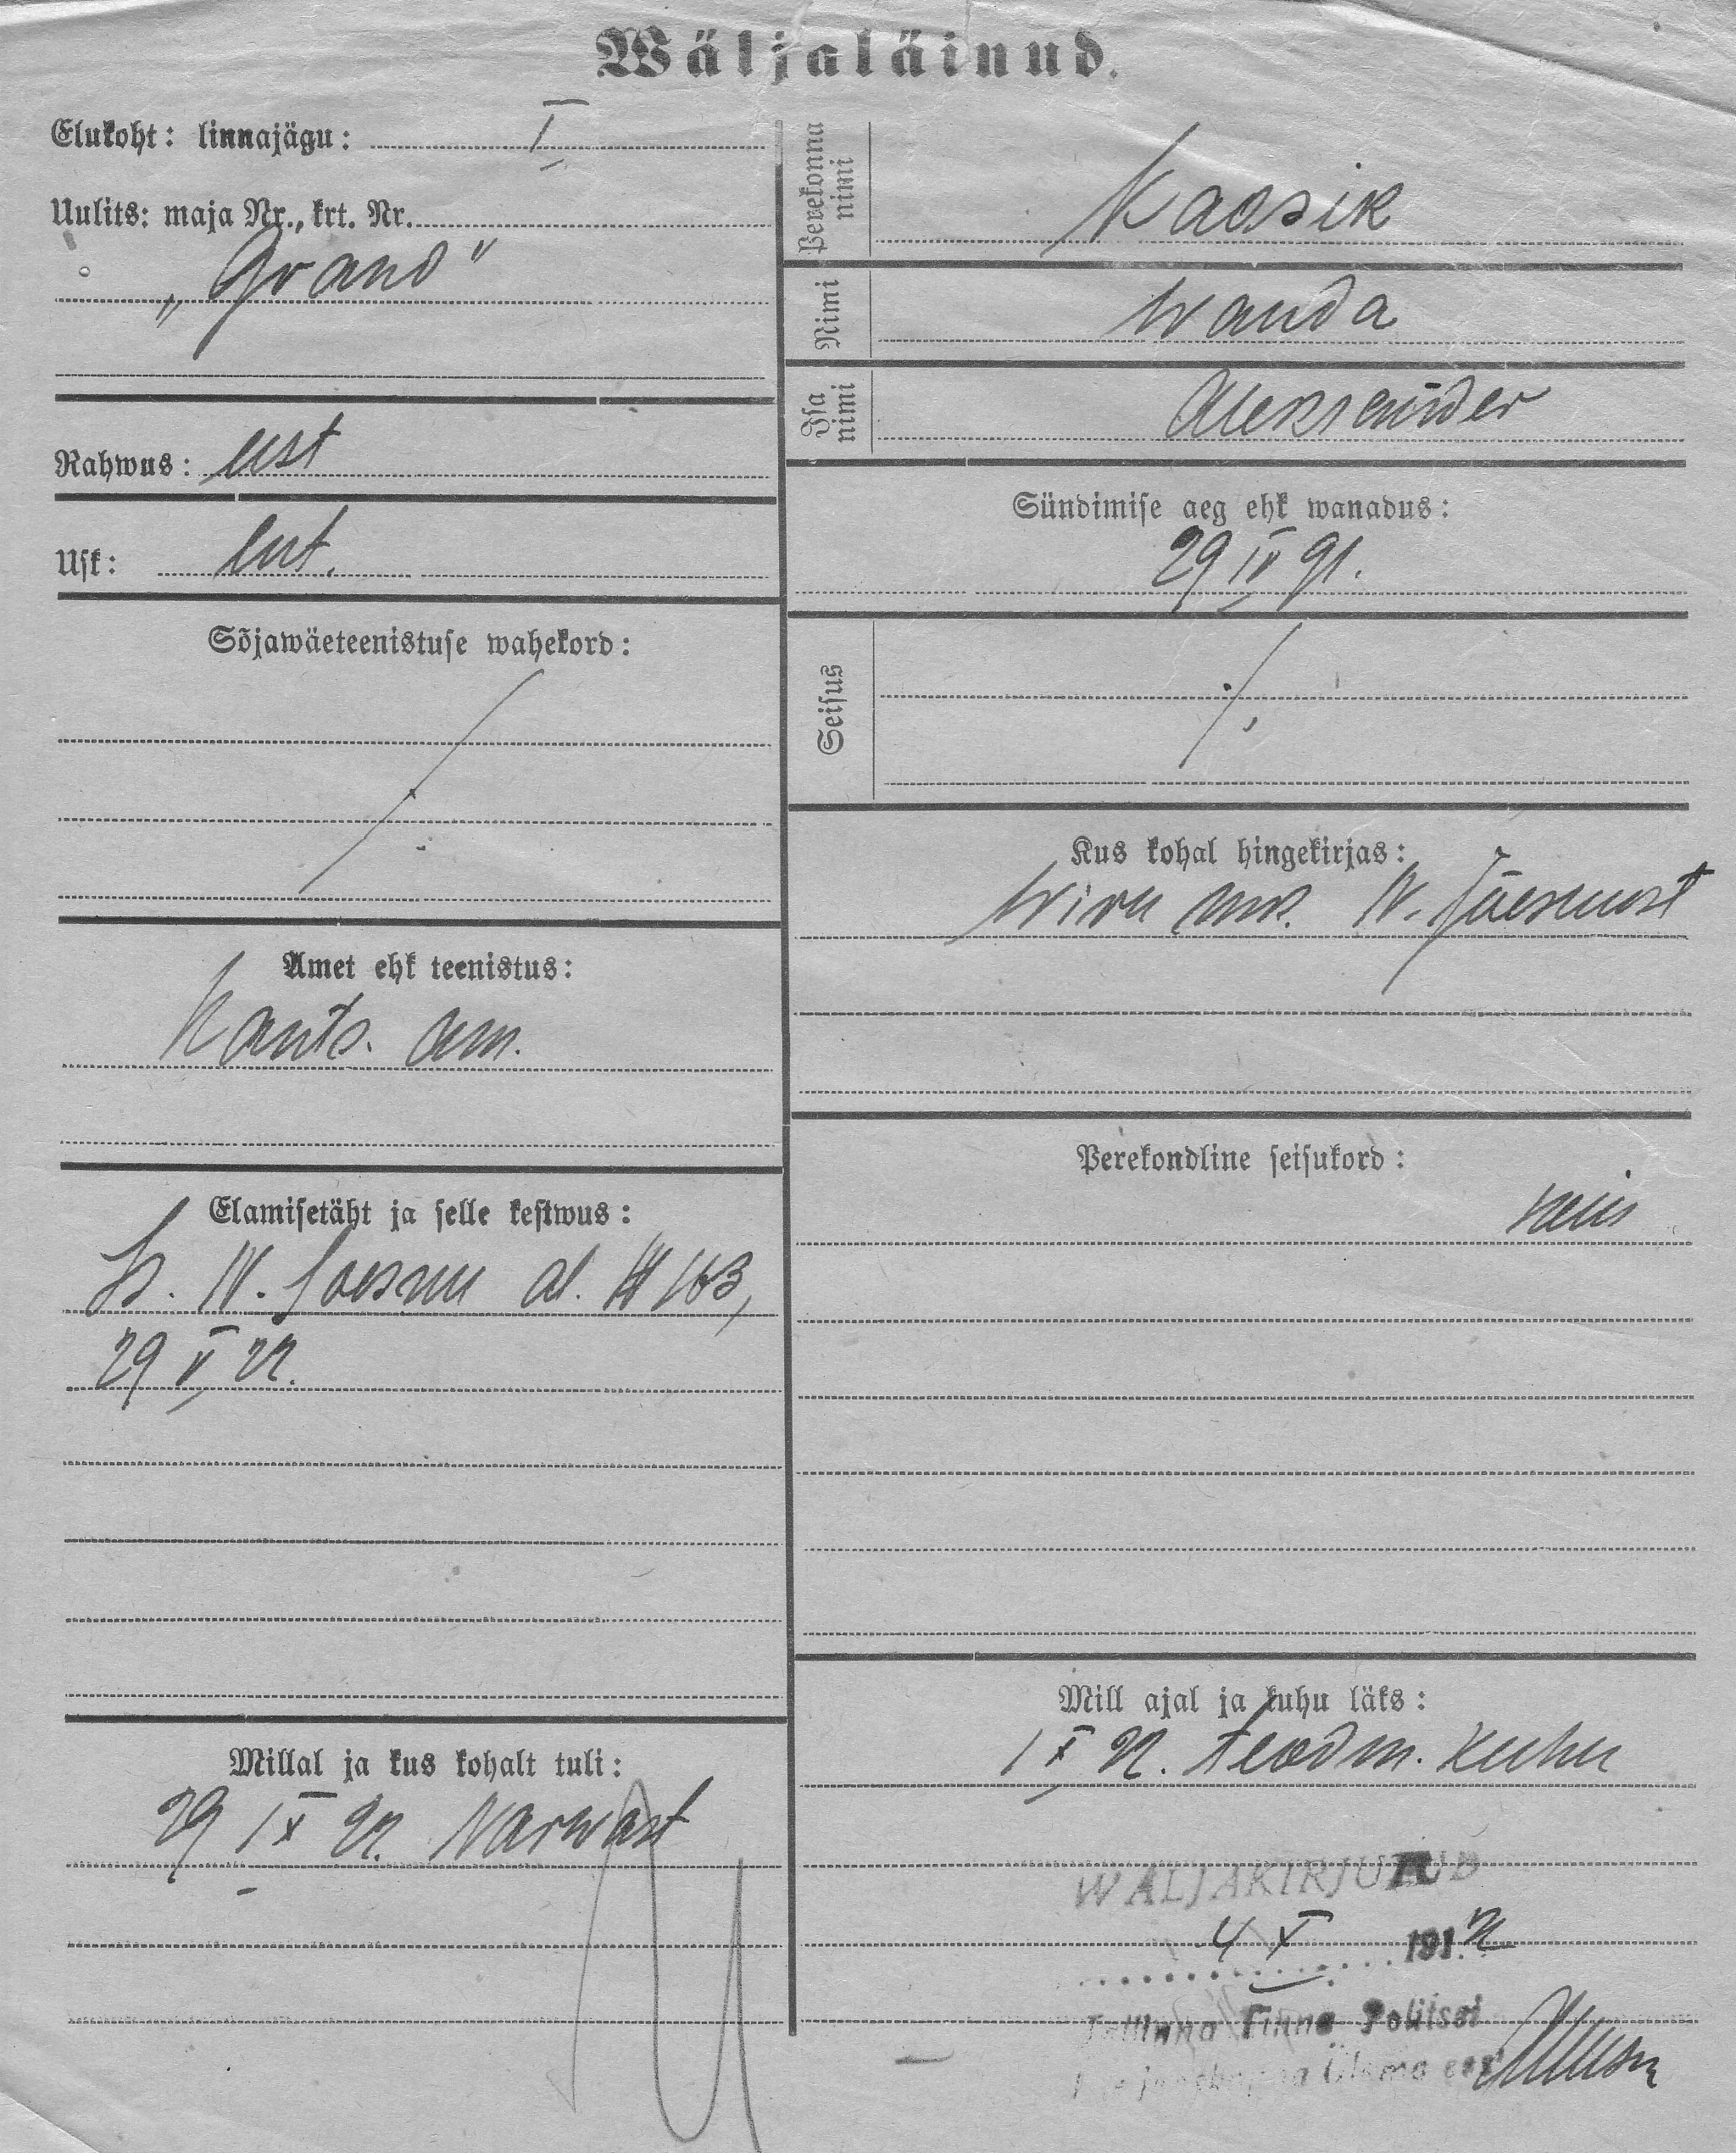 Wäljaläinud.
Elukoht: linnajägu: I
Uulits: maja Nr., krt. Nr.
„Grand"
Rahwus: est
Usk: lut.
Sõjawäeteenistuse wahekord:
Amet ehk teenistus:
Kants. am.
Elamisetäht ja selle kestwus:
N. Joesuu al. № 163,
29 V 22.
Millal ja kus kohalt tuli:
29 IX 22. Narwast
Perekonna nimi
Kaasik
Nimi
Wanda
Isa nimi
Aleksander
Sündimise aeg ehk wanadus:
29 IV 91.
Seisus
Kus kohal hingekirjas:
Wiru mk. N. Jõesuust
Perekondline seisukord:
neiu
Mill ajal ja kuhu läks:
1 X 22. teadm. kuhu
WÄLJAKIRJUTUD
4 X 1922
Tallinna linna Politsei
Ülema